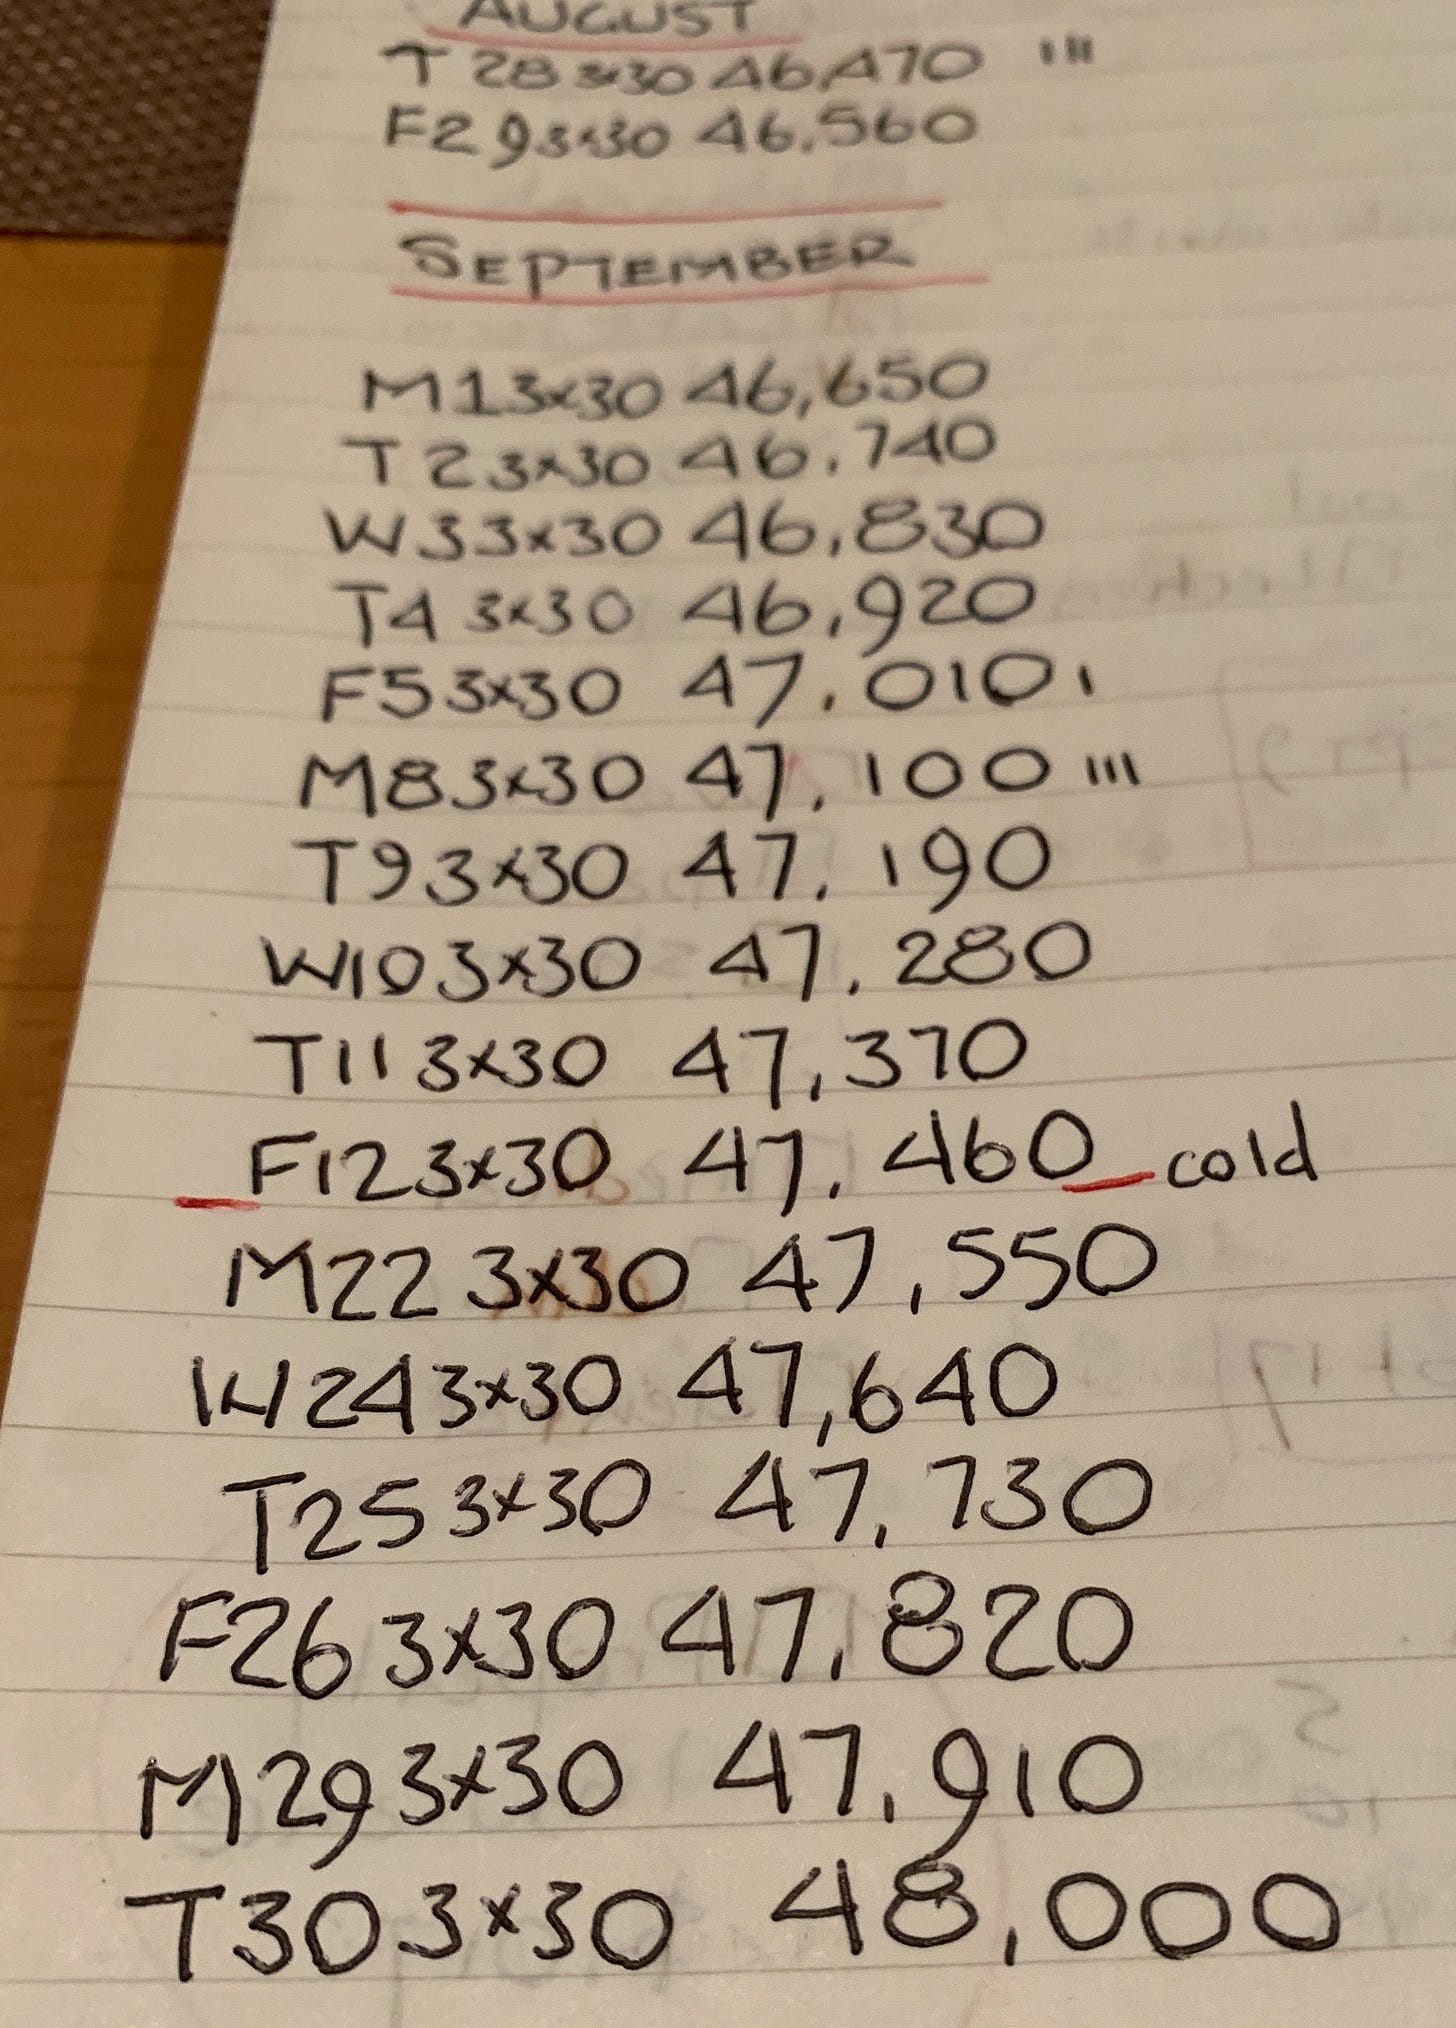 AUGUST
T 28 3x30 46,470 III
F29 3x30 46.560
SEPTEMBER
M1 3x30 46,650
T 2 3x30 46.740
W3 3x30 46,830
T4 3x30 46,920
F5 3x30 47.010 I
M8 3x30 47.100 III
T9 3x30 47.190
W10 3x30 47.280
T11 3x30 47,370
F12 3x30 47.460 cold
M22 3x30 47,550
W24 3x30 47,640
T25 3x30 47.730
F26 3x30 47.820
M29 3x30 47.910
T30 3x30 48,000